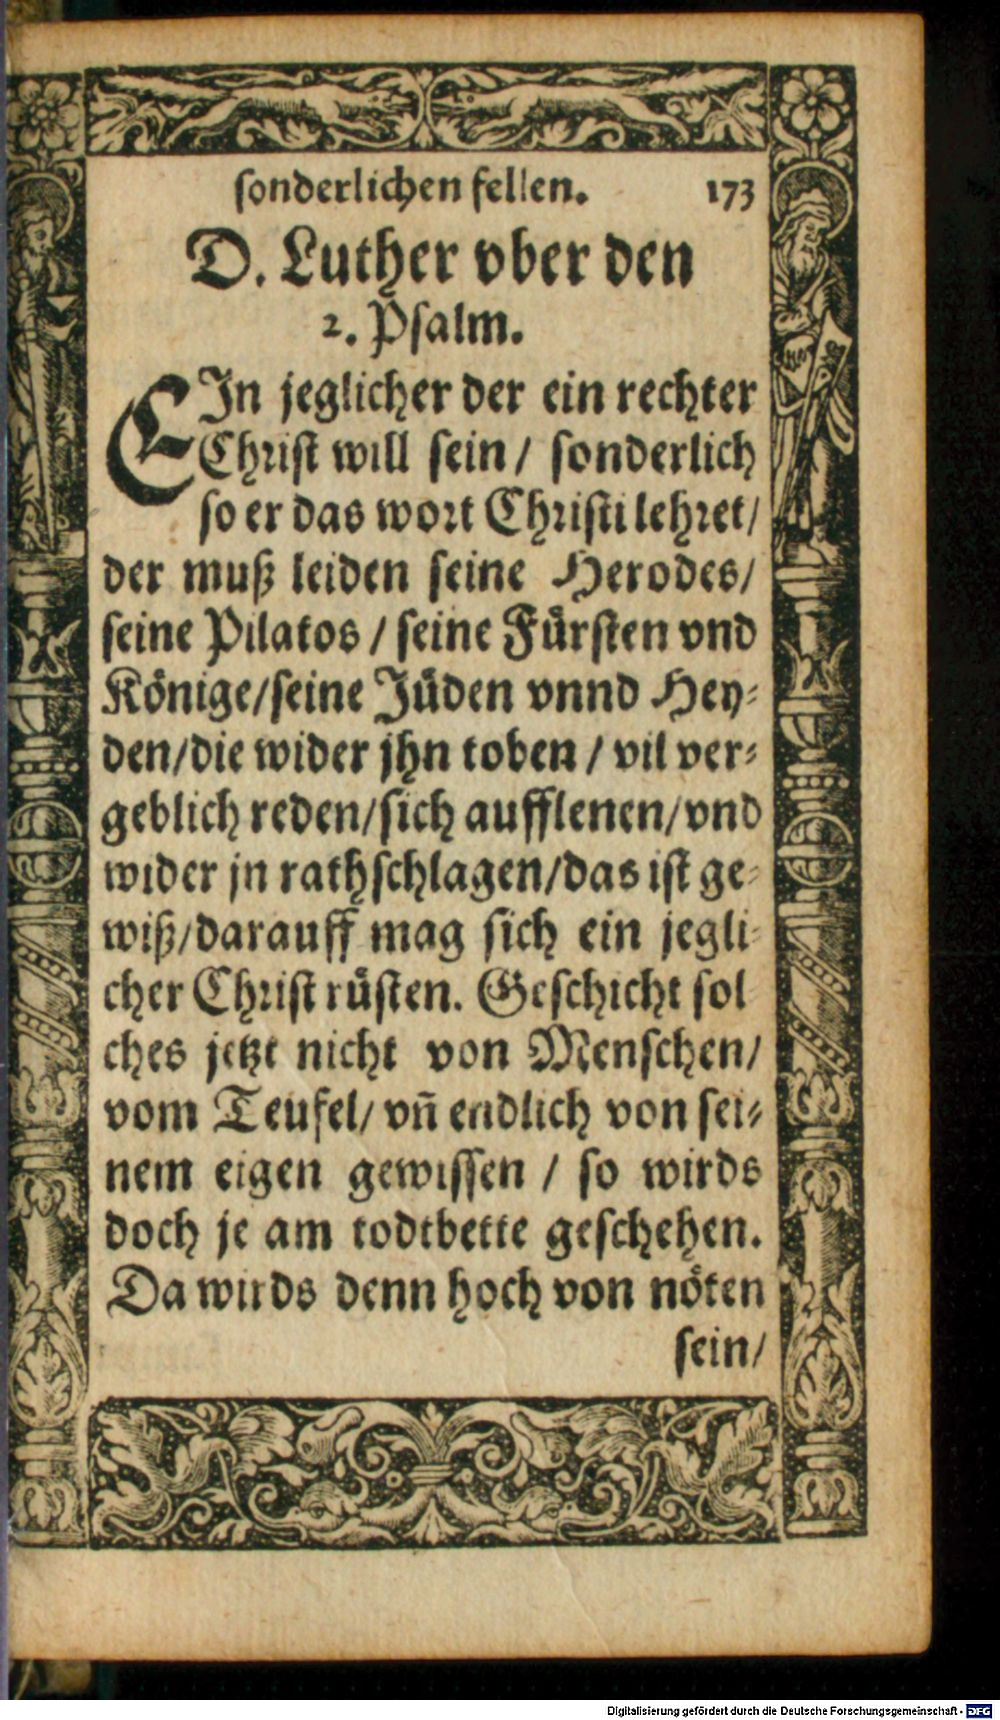 sonderlichen fellen. 173
D. Luther vber den
2. Psalm.
EIn jeglicher der ein rechter
Christ will sein / sonderlich
so er das wort Christi lehret /
der muß leiden seine Herodes /
seine Pilatos / seine Fürsten vnd
Könige / seine Jüden vnnd Hey-
den / die wider jhn toben / vil ver-
geblich reden / sich aufflenen / vnd
wider jn rathschlagen / das ist ge-
wiß / darauff mag sich ein jegli-
cher Christ rüsten. Geschicht sol
ches jetzt nicht von Menschen /
vom Teufel / vñ endlich von sei-
nem eigen gewissen / so wirds
doch je am todtbette geschehen.
Da wirds denn hoch von nöten
sein /
Digitalisierung gefördert durch die Deutsche Forschungsgemeinschaft - DFG